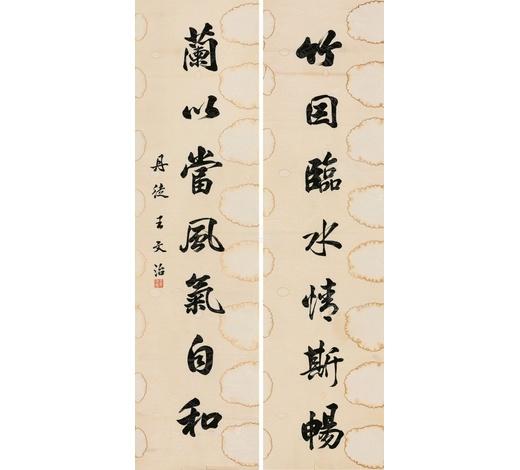 竹因臨水情斯暢
蘭以當風氣自和
丹徒王文治